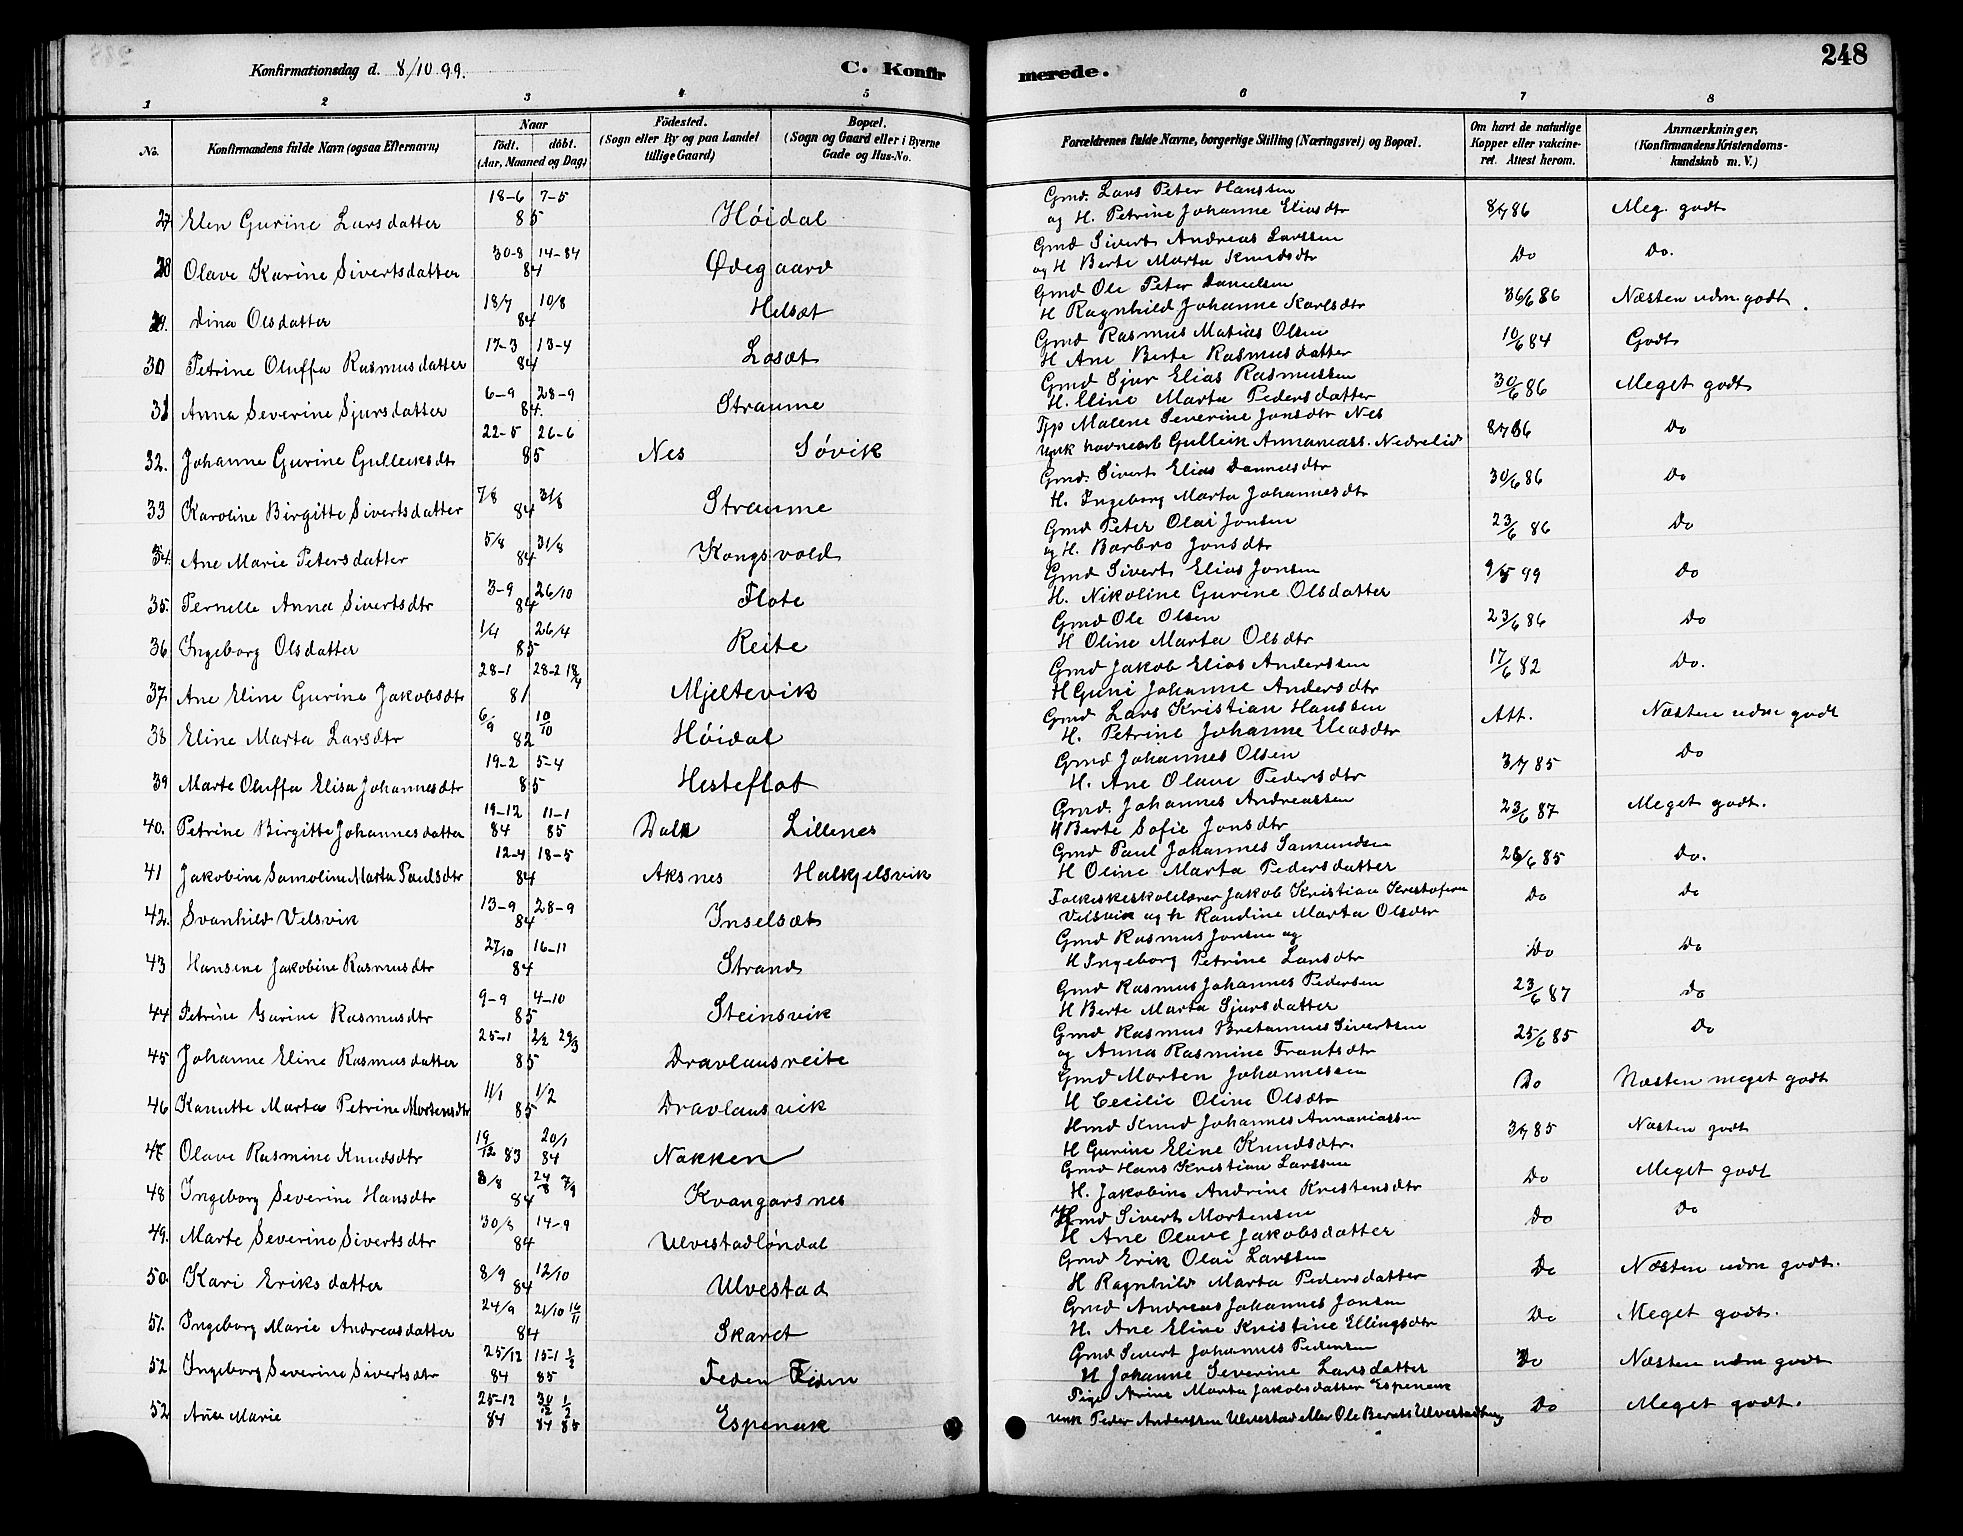 Konfirmationsdag d. 8/10 99.
C. Konfir
merede.
248
1 2 3 4 5 6 7 8
No.
Konfirmandens fulde Navn (ogsaa Efternavn)
Naar
født. døbt.
(Aar, Maaned og Dag)
Fødested.
(Sogn eller By og paa Landet
tillige Gaard)
Bopæl.
(Sogn og Gaard eller i Byerne
Gade og Hus-No.
Forældrenes fulde Navne, borgerlige Stilling (Næringsvei) og Bopæl.
Om havt de naturlige
Kopper eller vakcine-
ret. Attest herom.
Anmærkninger,
(Konfirmandens Kristendoms-
kundskab m. V.)
18-6 7-5 Gmd. Lars Peter Hanssen
27 Elen Gurine Larsdatter 85 Høidal og H. Petrine Johanne Eliasdtr 8/7 86 Meg. godt
30-8 14- 84 Gmd Sivert Andreas Larssen
28 Olave Karine Sivertsdatter 84 Ødegaard og H Berte Marta Knudsdtr Do Do.
18/7 10/8 Gmd Ole Peter Danielsen
29. Dina Olsdatter 84 Helsæt H Ragnhild Johanne Karlsdtr 36/6 86 Næsten udm. godt.
17-3 13-4 Gmd Rasmus Matias Olsen
30 Petrine Oluffa Rasmusdatter 84 Løsæt H Ane Berte Rasmusdatter 10/6 84 Godt
6-9 28-9 Gmd Sjur Elias Rasmussen
31 Anna Severine Sjursdatter 84. Straume H. Eline Marta Pedersdatter 30/6 86 Meget godt
22-5 26-6 Malene Severine Jonsdtr Nes
32. Johanne Gurine Gulleiksdtr 85 Nes Søvik Gulleik Annaniass. Nedrelid 8/7 86 Do
7/8 31/8 Gmd. Sivert Elias Danielsdtr
33 Karoline Birgitte Sivertsdatter 84 Straume H. Ingeborg Marta Johannesdtr 30/6 86 Do
5/8 31/8 Gmd Peter Olai Jonsen
34. Ane Marie Petersdatter 84 Kongsvold og H. Barbro Jonsdtr 23/6 86 Do
3-9 26/10 Gmd Sivert Elias Jonsen
35. Pernelle Anna Sivertsdtr 84 Flote H. Nikoline Gurine Olsdatter 9/5 99 Do
1/4 26/4 Gmd Ole Olsen
36 Ingeborg Olsdatter 85 Reite H Oline Marta Olsdtr 23/6 86 Do
28-1 28-2 Gmd Jakob Elias Anderssen
37. Ane Eline Gurine Jakobsdtr 81 Mjeltevik H Guni Johanne Andersdtr 17/6 82 Do.
6/9 10/10 Gmd Lars Kristian Hanssen
38 Eline Marta Larsdtr 82 Høidal H. Petrine Johanne Eliasdtr Att. Næsten udm godt
19-2 5-4 Gmd Johannes Olsen
39 Marte Oluffa Elisa Johannesdtr 85 Hesteflot H. Ane Olave Pedersdtr 3/7 85 Do
19-12 11-1 Gmd. Johannes Andreassen
40. Petrine Birgitte Johannesdatter 84 85 Dale Lillenes H Berte Sofie Jonsdtr 23/6 87 Meget godt.
12-4 18-5 Gmd Paul Johannes Samundsen
41 Jakobine Samoline Marta Paulsdtr 84 Aksnes Halkjelsvik H Oline Marta Pedersdatter 26/6 85 Do.
13-9 28-9 Jakob Kristian Kristofersen
42. Svanhild Velsvik 84 Inselsæt Velsvik og h Randine Marta Olsdtr Do Do
27/10 16-11 Gmd Rasmus Jonsen og
43 Hansine Jakobine Rasmusdtr 84 Strand H Ingeborg Petrine Larsdtr Do Do
9-9 4-10 Gmd Rasmus Johannes Pedersen
44 Petrine Gurine Rasmusdtr 85 Steinsvik H Berte Marta Sjursdatter 23/6 87 Do
25-1 2/2 29/3 Gmd Rasmus Bretanus Sivertsen
45 Johanne Eline Rasmusdatter 85 Dravlausreite og Anna Rasmine Frantsdtr 25/6 85 Do
11/1 1/2 Gmd Morten Johannessen
46 Kanutte Marta Petrine Mortensdtr 85 Dravlausvik H Cecilie Oline Olsdtr Do Næsten meget godt
19/12 83 20/1 84 Hmd Knud Johannes Annaniassen
47 Olave Rasmine Knudsdtr Nakken H Gurine Eline Knudsdtr. 3/7 85 Næsten godt
8/8 24/8 7/9 Gmd Hans Kristian Larssen
48 Ingeborg Severine Hansdtr 84 Kvangarsnes H. Jakobine Andrine Kristensdtr Do Meget godt
30/8 14-9 Hmd Sivert Mortensen
49. Marte Severine Sivertsdtr 84 Ulvestadløndal H Ane Olave Jakobsdatter Do Do
8/9 12/10 Gmd Erik Olai Larssen
50. Kari Eriksdatter 84 Ulvestad H Ragnhild Marta Pedersdatter Do Næsten udm godt.
24/9 21/10 16/11 Gmd Andreas Johannes Jonsen
51. Ingeborg Marie Andreasdatter 84 Skaret H. Ane Eline Kristine Ellingsdtr Do Meget godt.
25/12 15-1 1/2 Gmd Sivert Johannes Pedersen
52 Ingeborg Severine Sivertsdtr 84 85 Feden H Johanne Severine Larsdatter Do Næsten udm godt
25-12 30/12 1/2 Pige Arine Marta Jakobsdatter Espenæk
52 Ane Marie 84 84 85 Espenæk Peder Anderssen Ulvestad eller Ole Berats Ulvestadbug Do Meget godt.